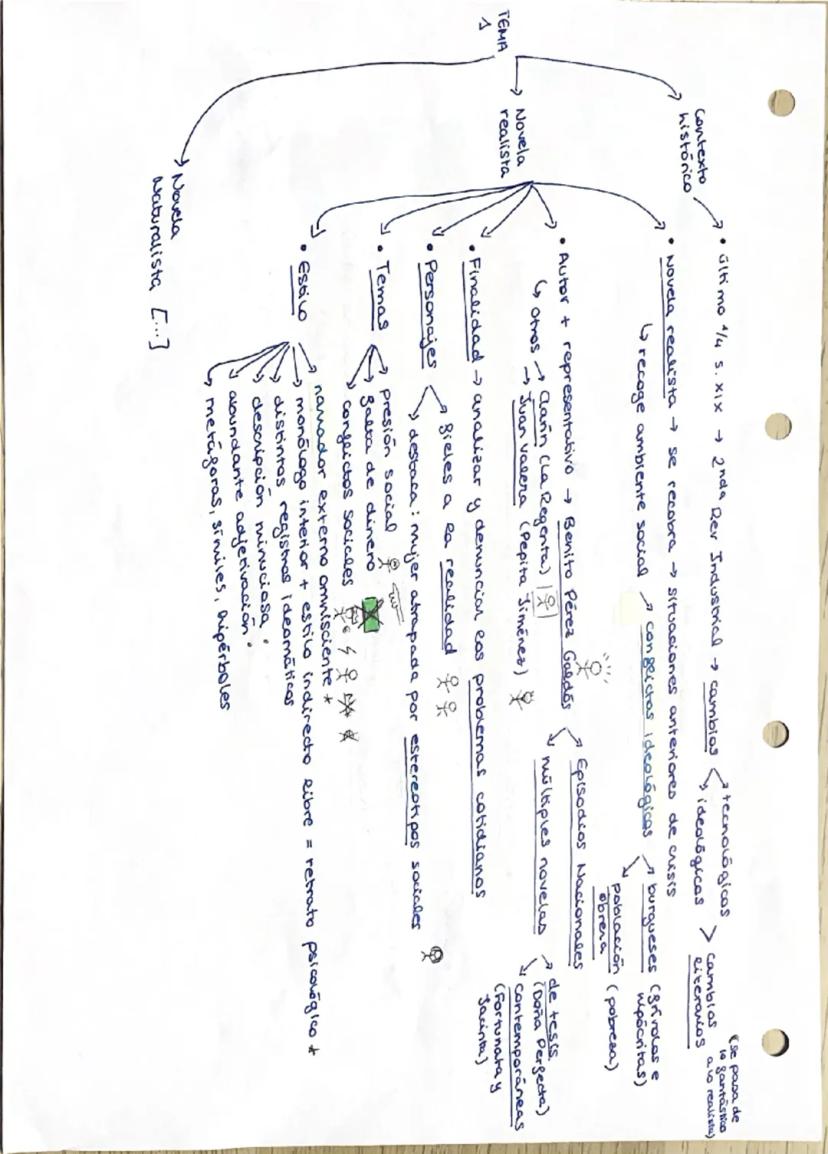 TEMA 1
Contexto histórico
• último 1/4 s. XIX → 2nda Rev Industrial → cambios
tecnológicos
ideológicos
cambios literarios
(se pasa de lo fantástico a lo realista)
Novela realista
• Novela realista → se recobra → situaciones anteriores de crisis
↳ recoge ambiente social → conflictos ideológicos
burgueses (frívolos e hipócritas)
población obrera (pobreza)
• Autor + representativo → Benito Pérez Galdós
Episodios Nacionales
múltiples novelas
de tesis (Doña Perfecta)
contemporáneas (Fortunata y Jacinta)
↳ otros → Clarín (La Regenta)
→ Juan Valera (Pepita Jiménez)
• Finalidad → analizar y denunciar los problemas cotidianos
• Personajes
fieles a la realidad
destaca: mujer atrapada por estereotipos sociales
• Temas
presión social
falta de dinero
conflictos sociales
• Estilo
narrador externo omnisciente *
monólogo interior + estilo indirecto libre = retrato psicológico *
distintos registros idiomáticos
descripción minuciosa.
abundante adjetivación.
metáforas, símiles, hipérboles
Novela Naturalista [...]